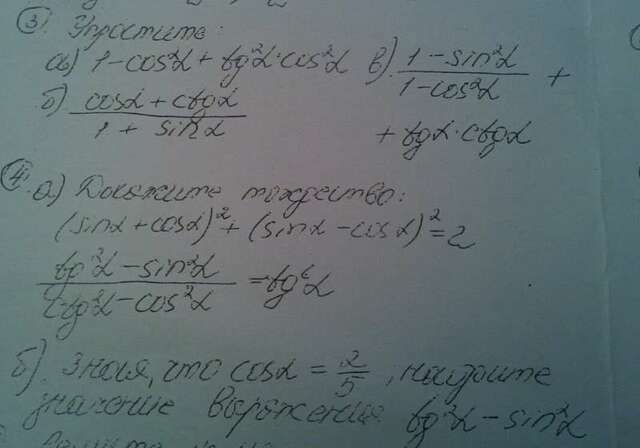 3 Упростите:
а) 1-cos²α + tg²α·cos²α в) (1-sin²α)/(1-cos²α) +
б) (cosα + ctgα)/(1 + sinα) + tgα·ctgα
4 а) Докажите тождество:
(sinα + cosα)² + (sinα - cosα)² = 2
(tg²α - sin²α)/(ctg²α - cos²α) = tg⁶α
б) Зная, что cosα = 2/5, найдите
значение выражения tg²α - sin²α